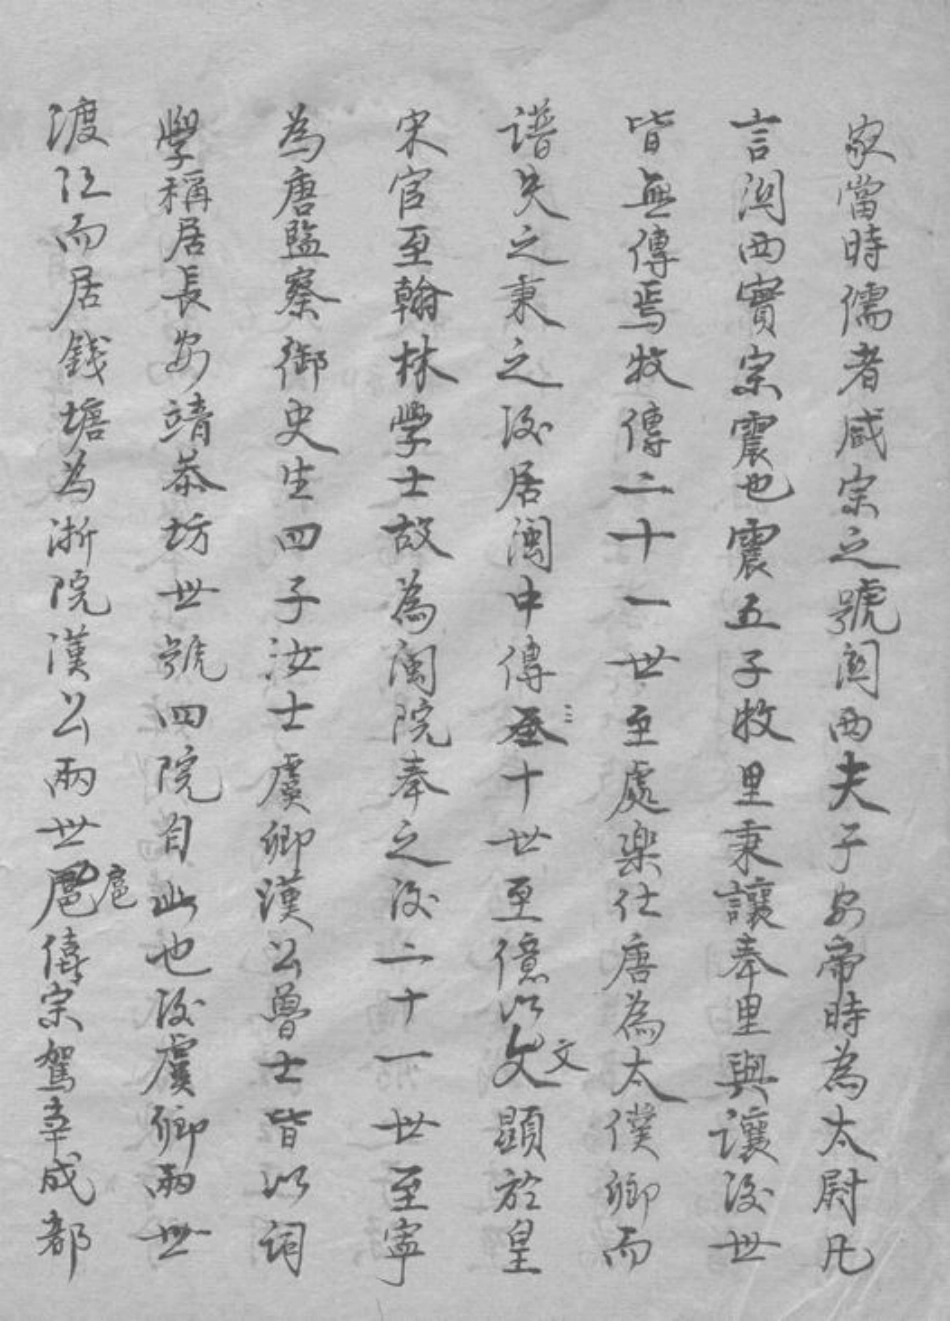 家當時儒者咸宗之號関西夫子安帝時為太尉凡
言関西實宗震也震五子牧里秉讓奉里與讓後世
皆無傳焉牧傳二十一世至處樂仕唐為太僕卿而
譜失之秉之後居閩中傳至十世至億以文文顕於皇
宋官至翰林學士故為閩院奉之後二十一世至寧
為唐監察御史生四子汝士虞卿漢公魯士皆以詞
學稱居長安靖恭坊世號四院自此也後虞卿兩世
渡江而居錢塘為浙院漢公兩世扈扈僖宗駕幸成都